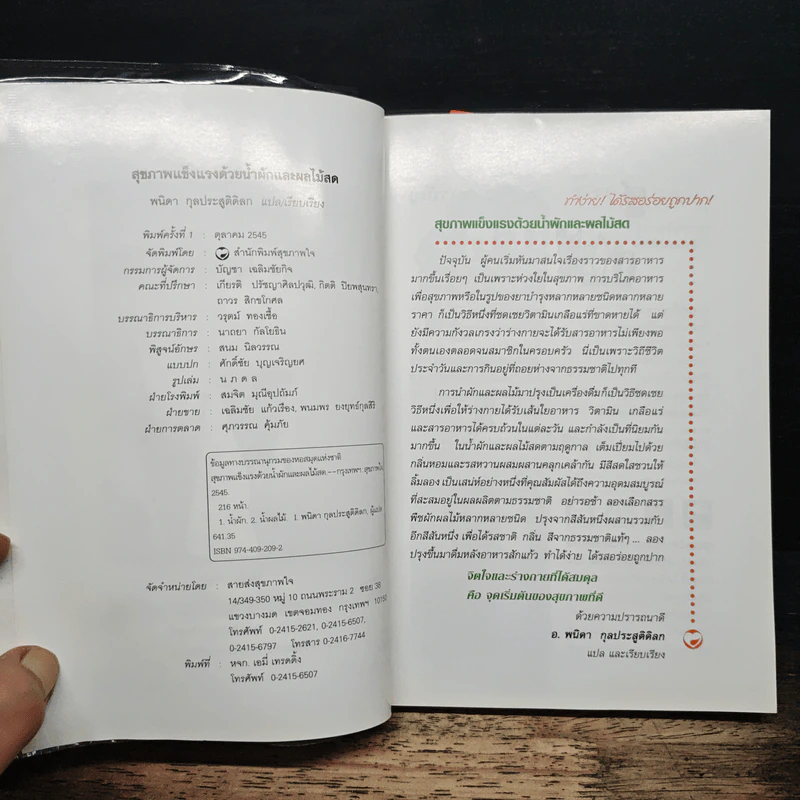 สุขภาพแข็งแรงด้วยน้ำผักและผลไม้สด
พนิดา กุลประสูติดิลก แปล/เรียบเรียง
พิมพ์ครั้งที่ 1 : ตุลาคม 2545
จัดพิมพ์โดย : สำนักพิมพ์สุขภาพใจ
กรรมการผู้จัดการ : บัญชา เฉลิมชัยกิจ
คณะที่ปรึกษา : เกียรติ ปรัชญาศิลปวุฒิ, กิตติ ปิยพสุนทรา,
ถาวร สิกขโกศล
บรรณาธิการบริหาร : วรุตม์ ทองเชื้อ
บรรณาธิการ : นาถยา กัลโยธิน
พิสูจน์อักษร : สนม นิลวรรณ
แบบปก : ศักดิ์ชัย บุญเจริญยศ
รูปเล่ม : น ภ ด ล
ฝ่ายโรงพิมพ์ : สมจิต มุณีอุปถัมภ์
ฝ่ายขาย : เฉลิมชัย แก้วเรือง, พนมพร ยงยุทธ์กุลสิริ
ฝ่ายการตลาด : ศุภวรรณ คุ้มภัย
ข้อมูลทางบรรณานุกรมของหอสมุดแห่งชาติ
สุขภาพแข็งแรงด้วยน้ำผักและผลไม้สด--กรุงเทพฯ: สุขภาพใจ,
2545.
216 หน้า.
1. น้ำผัก. 2. น้ำผลไม้. 1. พนิดา กุลประสูติดิลก, ผู้แปล
641.35
ISBN 974-409-209-2
จัดจำหน่ายโดย : สายส่งสุขภาพใจ
14/349-350 หมู่ 10 ถนนพระราม 2 ซอย 38
แขวงบางมด เขตจอมทอง กรุงเทพฯ 10150
โทรศัพท์ 0-2415-2621, 0-2415-6507,
0-2415-6797 โทรสาร 0-2416-7744
พิมพ์ที่ : หจก. เอมี่ เทรดดิ้ง
โทรศัพท์ 0-2415-6507
ทำง่าย! ได้รสอร่อยถูกปาก!
สุขภาพแข็งแรงด้วยน้ำผักและผลไม้สด
ปัจจุบัน ผู้คนเริ่มหันมาสนใจเรื่องราวของสารอาหาร
มากขึ้นเรื่อยๆ เป็นเพราะห่วงใยในสุขภาพ การบริโภคอาหาร
เพื่อสุขภาพหรือในรูปของยาบำรุงหลากหลายชนิดหลากหลาย
ราคา ก็เป็นวิธีหนึ่งที่ชดเชยวิตามินเกลือแร่ที่ขาดหายได้ แต่
ยังมีความกังวลเกรงว่าร่างกายจะได้รับสารอาหารไม่เพียงพอ
ทั้งตนเองตลอดจนสมาชิกในครอบครัว นี่เป็นเพราะวิถีชีวิต
ประจำวันและการกินอยู่ที่ถอยห่างจากธรรมชาติไปทุกที
การนำผักและผลไม้มาปรุงเป็นเครื่องดื่มก็เป็นวิธีชดเชย
วิธีหนึ่งเพื่อให้ร่างกายได้รับเส้นใยอาหาร วิตามิน เกลือแร่
และสารอาหารได้ครบถ้วนในแต่ละวัน และกำลังเป็นที่นิยมกัน
มากขึ้น ในน้ำผักและผลไม้สดตามฤดูกาล เต็มเปี่ยมไปด้วย
กลิ่นหอมและรสหวานผสมผสานคลุกเคล้ากัน มีสีสดใสชวนให้
ลิ้มลอง เป็นเสน่ห์อย่างหนึ่งที่คุณสัมผัสได้ถึงความอุดมสมบูรณ์
ที่สะสมอยู่ในผลผลิตตามธรรมชาติ อย่ารอช้า ลองเลือกสรร
พืชผักผลไม้หลากหลายชนิด ปรุงจากสีสันหนึ่งผสานรวมกับ
อีกสีสันหนึ่ง เพื่อได้รสชาติ กลิ่น สีจากธรรมชาติแท้ๆ... ลอง
ปรุงขึ้นมาดื่มหลังอาหารสักแก้ว ทำได้ง่าย ได้รสอร่อยถูกปาก
จิตใจและร่างกายที่ได้สมดุล
คือ จุดเริ่มต้นของสุขภาพที่ดี
ด้วยความปรารถนาดี
อ. พนิดา กุลประสูติดิลก
แปล และเรียบเรียง